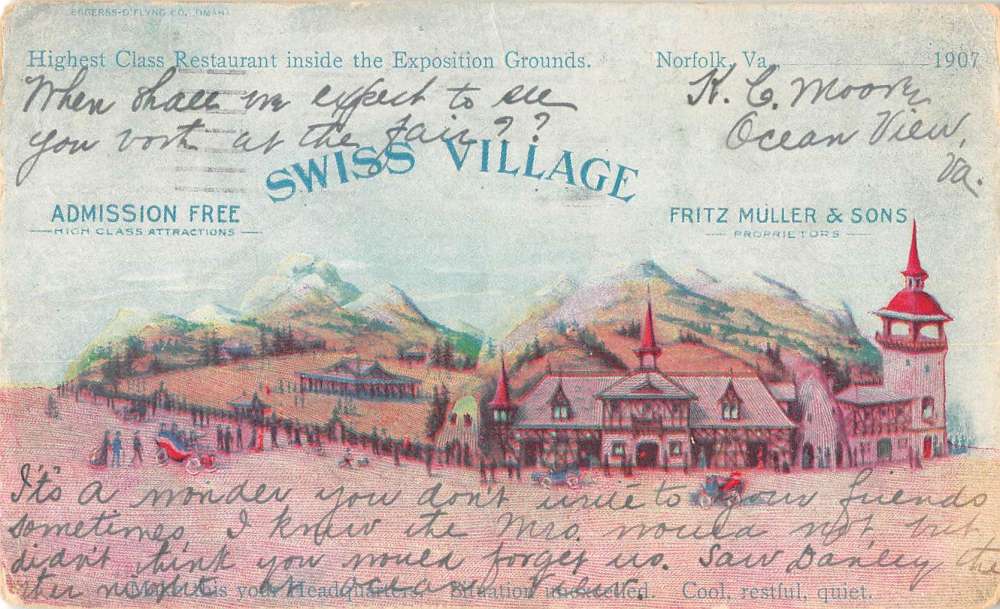 EGGERSS-O'FLYNG CO. OMAHA
Highest Class Restaurant inside the Exposition Grounds. Norfolk, Va. 1907
When shall we expect to see
you at the fair??
K. C. Moore
Ocean View,
Va.
SWISS VILLAGE
ADMISSION FREE
HIGH CLASS ATTRACTIONS
FRITZ MÜLLER & SONS
PROPRIETORS
It's a wonder you don't write to your friends
sometimes, I know the Mrs. would not, but
didn't think you would forget us. Saw Danley the
other night at Ocean View.
Make this your Headquarters. Situation unexcelled. Cool, restful, quiet.